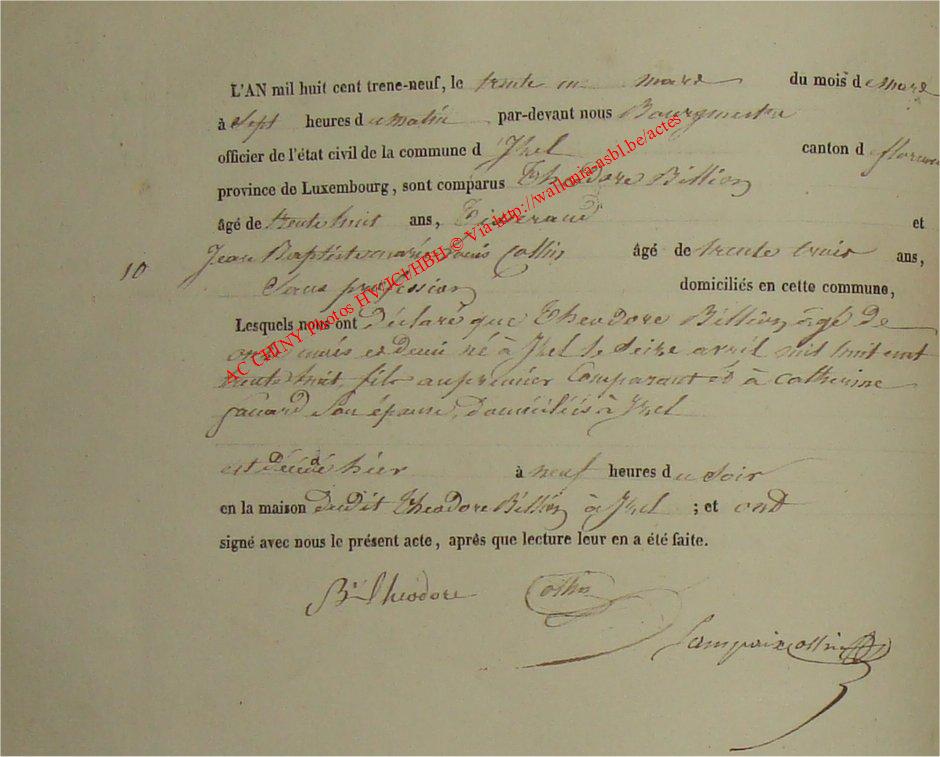 L'AN mil huit cent trene-neuf, le trente un mars du mois de mars
à Sept heures du matin par-devant nous Bourgmestre
officier de l'état civil de la commune d'Izel canton de florenv
province de Luxembourg, sont comparus Theodore Billion
âgé de trente huit ans, Tisserand et
Jean Baptiste marie Louis Collin âgé de trente trois ans,
10 Sans profession domiciliés en cette commune,
Lesquels nous ont Déclaré que Theodore Billion âgé de
onze mois et demi né à Izel le Seize avril mil huit cent
trente huit, fils au premier Comparant et à Catherine
son épouse, domiciliés à Izel
est Décédé hier à neuf heures du Soir
en la maison dudit Theodore Billion à Izel ; et ont
signé avec nous le présent acte, après que lecture leur en a été faite.
Bn Theodore Collin
Lampaix collin
AC CHINY Photos HV/JCI/HBH © Via http://wallonia-asbl.be/actes